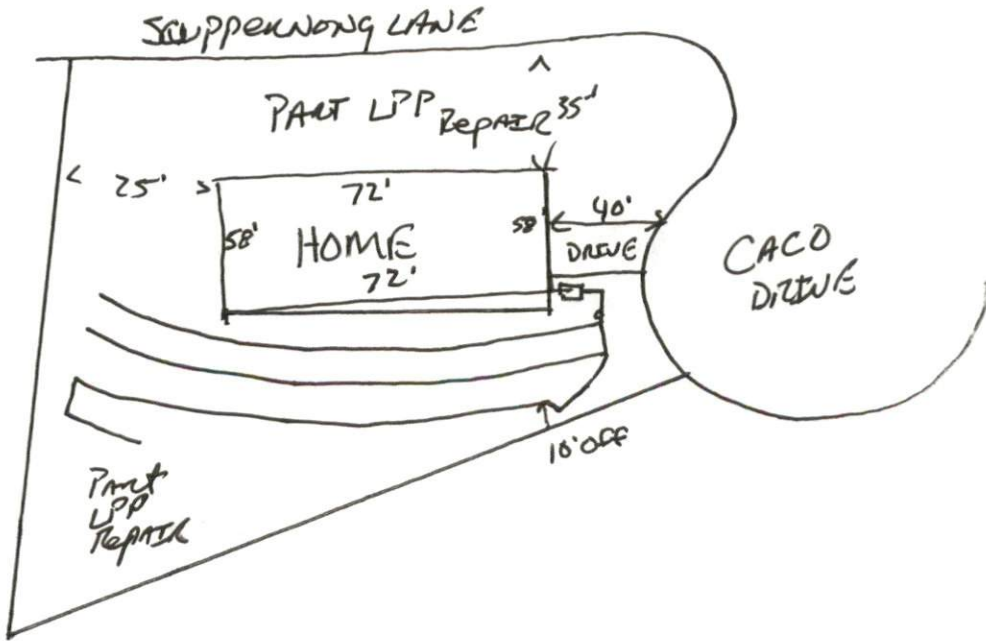 SCUPPERNONG LANE
PART LPP
REPAIR
35'
25'
72'
58'
HOME
58'
72'
40'
DRIVE
CACO
DRIVE
10' OFF
PART
LPP
REPAIR